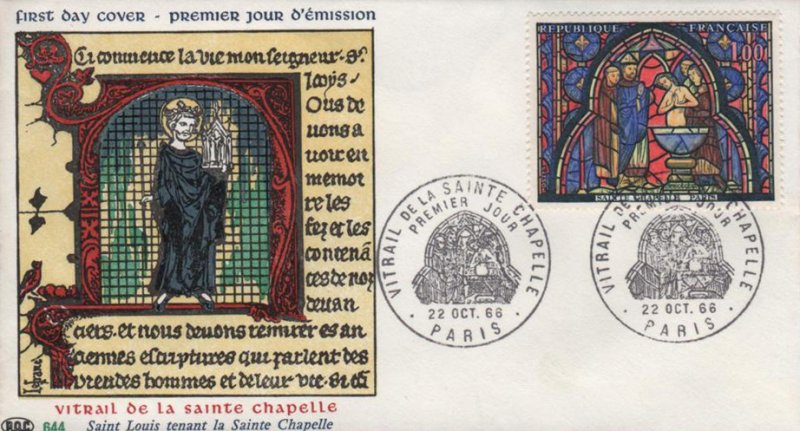 FIRST DAY COVER - PREMIER JOUR D'ÉMISSION
Ci commence la vie monseigneur st
looys
Ous de
uons a
uoir en
memoi
re les
fez et les
contenā
ces de noz
deuan
ciers. et nous deuons remirer es an
ciennes escriptures qui parlent des
hommes et de leur vie.
VITRAIL DE LA SAINTE CHAPELLE
644 Saint Louis tenant la Sainte Chapelle
REPUBLIQUE FRANÇAISE
1,00
SAINTE CHAPELLE PARIS
VITRAIL DE LA SAINTE CHAPELLE
PREMIER JOUR
22 OCT. 66
• PARIS •
VITRAIL DE LA SAINTE CHAPELLE
PREMIER JOUR
22 OCT. 66
• PARIS •